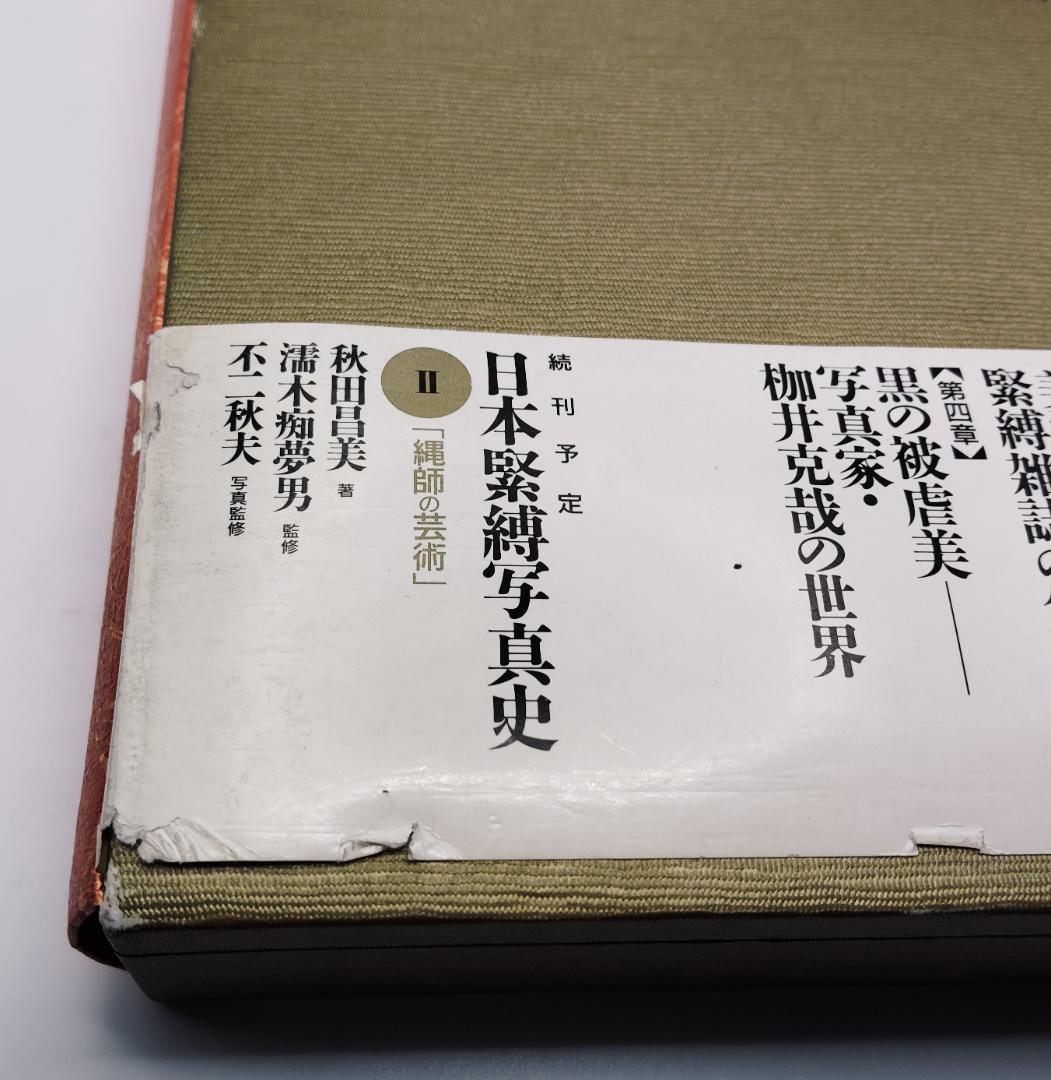 緊縛雑誌の
【第四章】
黒の被虐美――
写真家・
枷井克哉の世界
続刊予定
日本緊縛写真史
II
「縄師の芸術」
秋田昌美 著
濡木痴夢男 監修
不二秋夫 写真監修